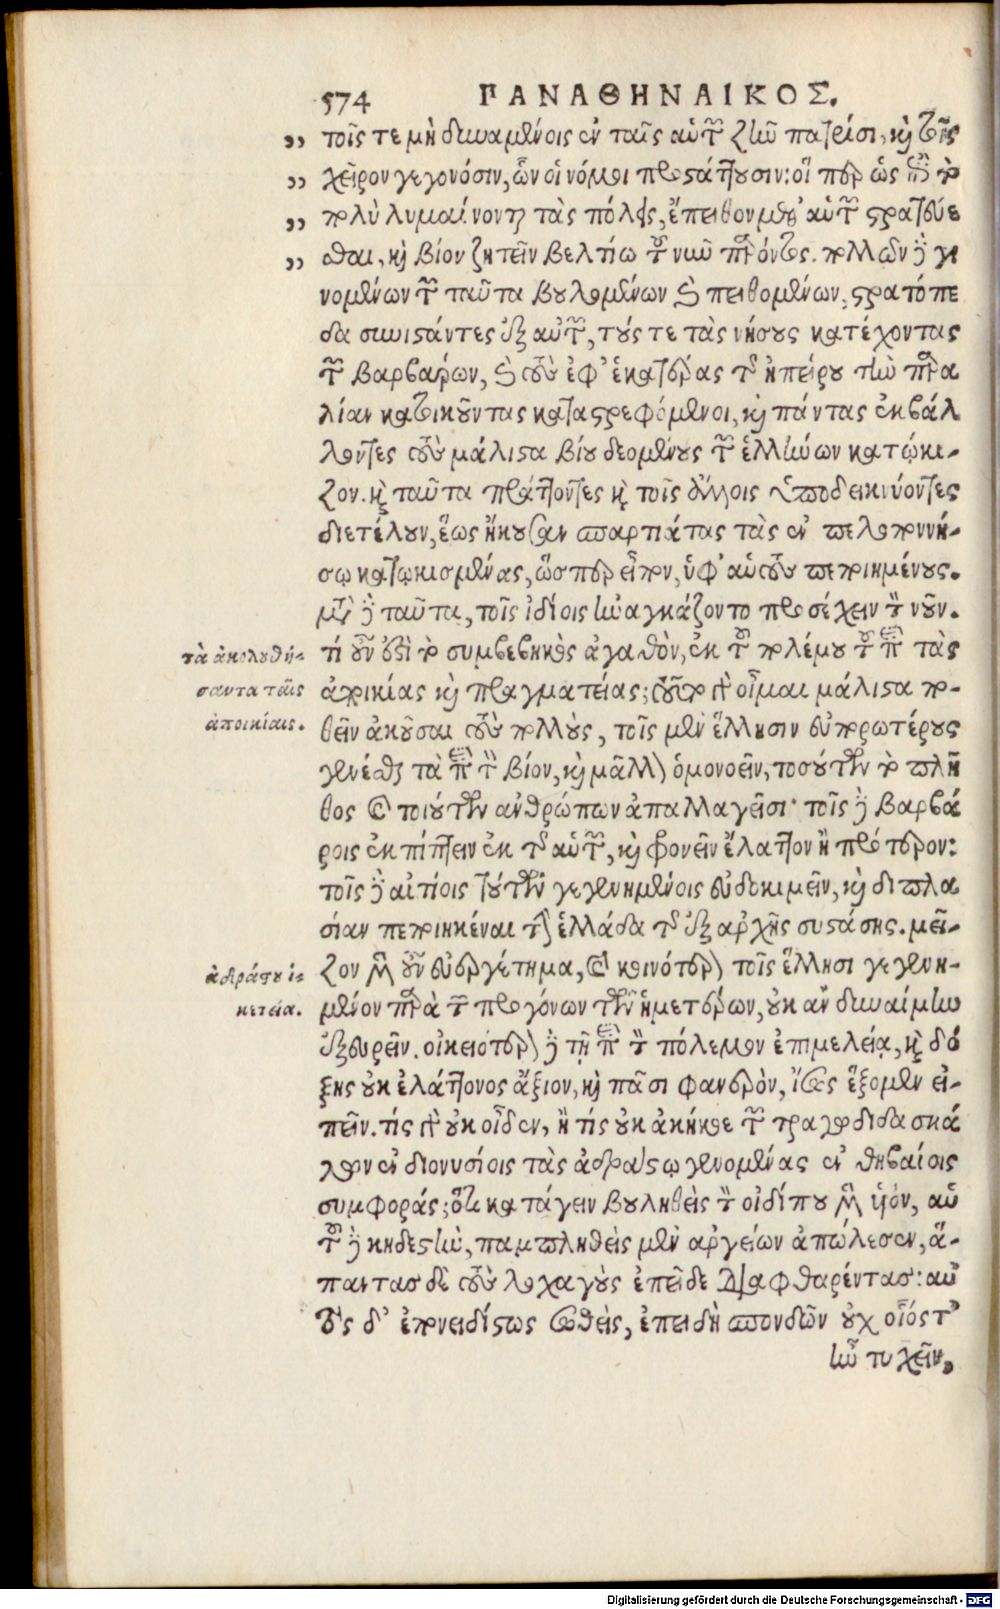 574 ΠΑΝΑΘΗΝΑΙΚΟΣ.
,, τοῖς τε μὴ δυναμένοις ἐν ταῖς αὑτῶν ζῆν πατρίσι, καὶ τοῖς
,, χεῖρον γεγονόσιν, ὧν οἱ νόμοι προστάττουσιν: οἵ περ ὡς ἐπὶ τὸ
,, πολὺ λυμαίνονται τὰς πόλεις, ἔπειθον μεθ' αὑτῶν στρατεύε
,, σθαι, καὶ βίον ζητεῖν βελτίω τοῦ νῦν παρόντος. πολλῶν δὲ γε
νομένων τῶν ταῦτα βουλομένων καὶ πειθομένων, στρατόπε
δα συνιστάντες ἐξ αὐτῶν, τούς τε τὰς νήσους κατέχοντας
τῶν βαρβάρων, καὶ τοὺς ἐφ' ἑκατέρας τῆς ἠπείρου τὴν παρα
λίαν κατοικοῦντας καταστρεφόμενοι, καὶ πάντας ἐκβάλ
λοντες τοὺς μάλιστα βίου δεομένους τῶν ἑλλήνων κατῴκι-
ζον. καὶ ταῦτα πράττοντες καὶ τοῖς ἄλλοις ὑποδεικνύοντες
διετέλουν, ἕως ἤκουσαν σπαρτιάτας τὰς ἐν πελοποννή-
σῳ κατῳκισμένας, ὥσπερ εἶπον, ὑφ' αὑτοὺς πεποιημένους.
μετὰ δὲ ταῦτα, τοῖς ἰδίοις ἠναγκάζοντο προσέχειν τὸν νοῦν.
τὰ ἀκολουθή- τί οὖν ἐστὶ τὸ συμβεβηκὸς ἀγαθὸν, ἐκ τοῦ πολέμου τοῦ περὶ τὰς
σαντα ταῖς ἀποικίας καὶ πραγματείας; τοῦτο γὰρ οἶμαι μάλιστα πο-
ἀποικίαις. θεῖν ἀκοῦσαι τοὺς πολλούς, τοῖς μὲν ἕλλησιν εὐπορωτέρους
γενέσθαι τὰ περὶ τὸν βίον, καὶ μᾶλλον ὁμονοεῖν, τοσούτων τὸ πλῆ
θος καὶ τοιούτων ἀνθρώπων ἀπαλλαγεῖσι· τοῖς δὲ βαρβά
ροις ἐκπίπτειν ἐκ τῆς αὑτῶν, καὶ φρονεῖν ἔλαττον ἢ πρότερον:
τοῖς δὲ αἰτίοις τούτων γεγενημένοις εὐδοκιμεῖν, καὶ διπλα
σίαν πεποιηκέναι τὴν ἑλλάδα τῆς ἐξ ἀρχῆς συστάσης. μεῖ-
ἀδράστου ἱ- ζον μὲν οὖν εὐεργέτημα, καὶ κοινότερον τοῖς ἕλλησι γεγενη-
κετεία. μένον παρὰ τῶν προγόνων τῶν ἡμετέρων, οὐκ ἂν δυναίμην
ἐξευρεῖν. οἰκειότερον δὲ τῇ περὶ τὸν πόλεμον ἐπιμελείᾳ, καὶ δό
ξης οὐκ ἐλάττονος ἄξιον, καὶ πᾶσι φανερὸν, ἴσως ἕξομεν εἰ-
πεῖν. τίς γὰρ οὐκ οἶδεν, ἢ τίς οὐκ ἀκήκοε τῶν τραγῳδιδασκά
λων ἐν διονυσίοις τὰς ἀδράστῳ γενομένας ἐν θήβαις
συμφοράς; ὅτι κατάγειν βουληθεὶς τὸν οἰδίπου μὲν ὑιόν, αὑ
τοῦ δὲ κηδεστὴν, παμπληθεῖς μὲν ἀργείων ἀπώλεσεν, ἅ-
παντας δὲ τοὺς λοχαγοὺς ἐπεῖδε διαφθαρέντας: αὐ
τὸς δ' ἐπονειδίστως σωθεὶς, ἐπειδὴ σπονδῶν οὐχ οἷός τ'
ἦν τυχεῖν,
Digitalisierung gefördert durch die Deutsche Forschungsgemeinschaft - DFG